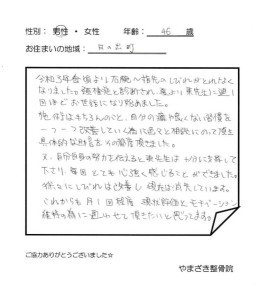 性別： 男性 ・ 女性　　年齢： 45 歳
お住まいの地域： 日の出町
令和3年春頃より右腕〜指先のしびれがとれなく
なりました。頚椎症と診断され、春より東先生に週1
回ほどお世話になり始めました。
施術はもちろんのこと、自分の癖や良くない習慣を
一つ一つ改善していく為に色々と相談にのって頂き
具体的な助言をその都度頂きました。
又、自分自身の努力を伝えると東先生は十分にお察して
下さり、毎回とても心強く感じることができました。
徐々にしびれは改善し現在は消失しています。
これからも月1回程度、現状評価とモチベーション
維持の為に通わせて頂きたいと思ってます。
ご協力ありがとうございました☆
やまざき整骨院